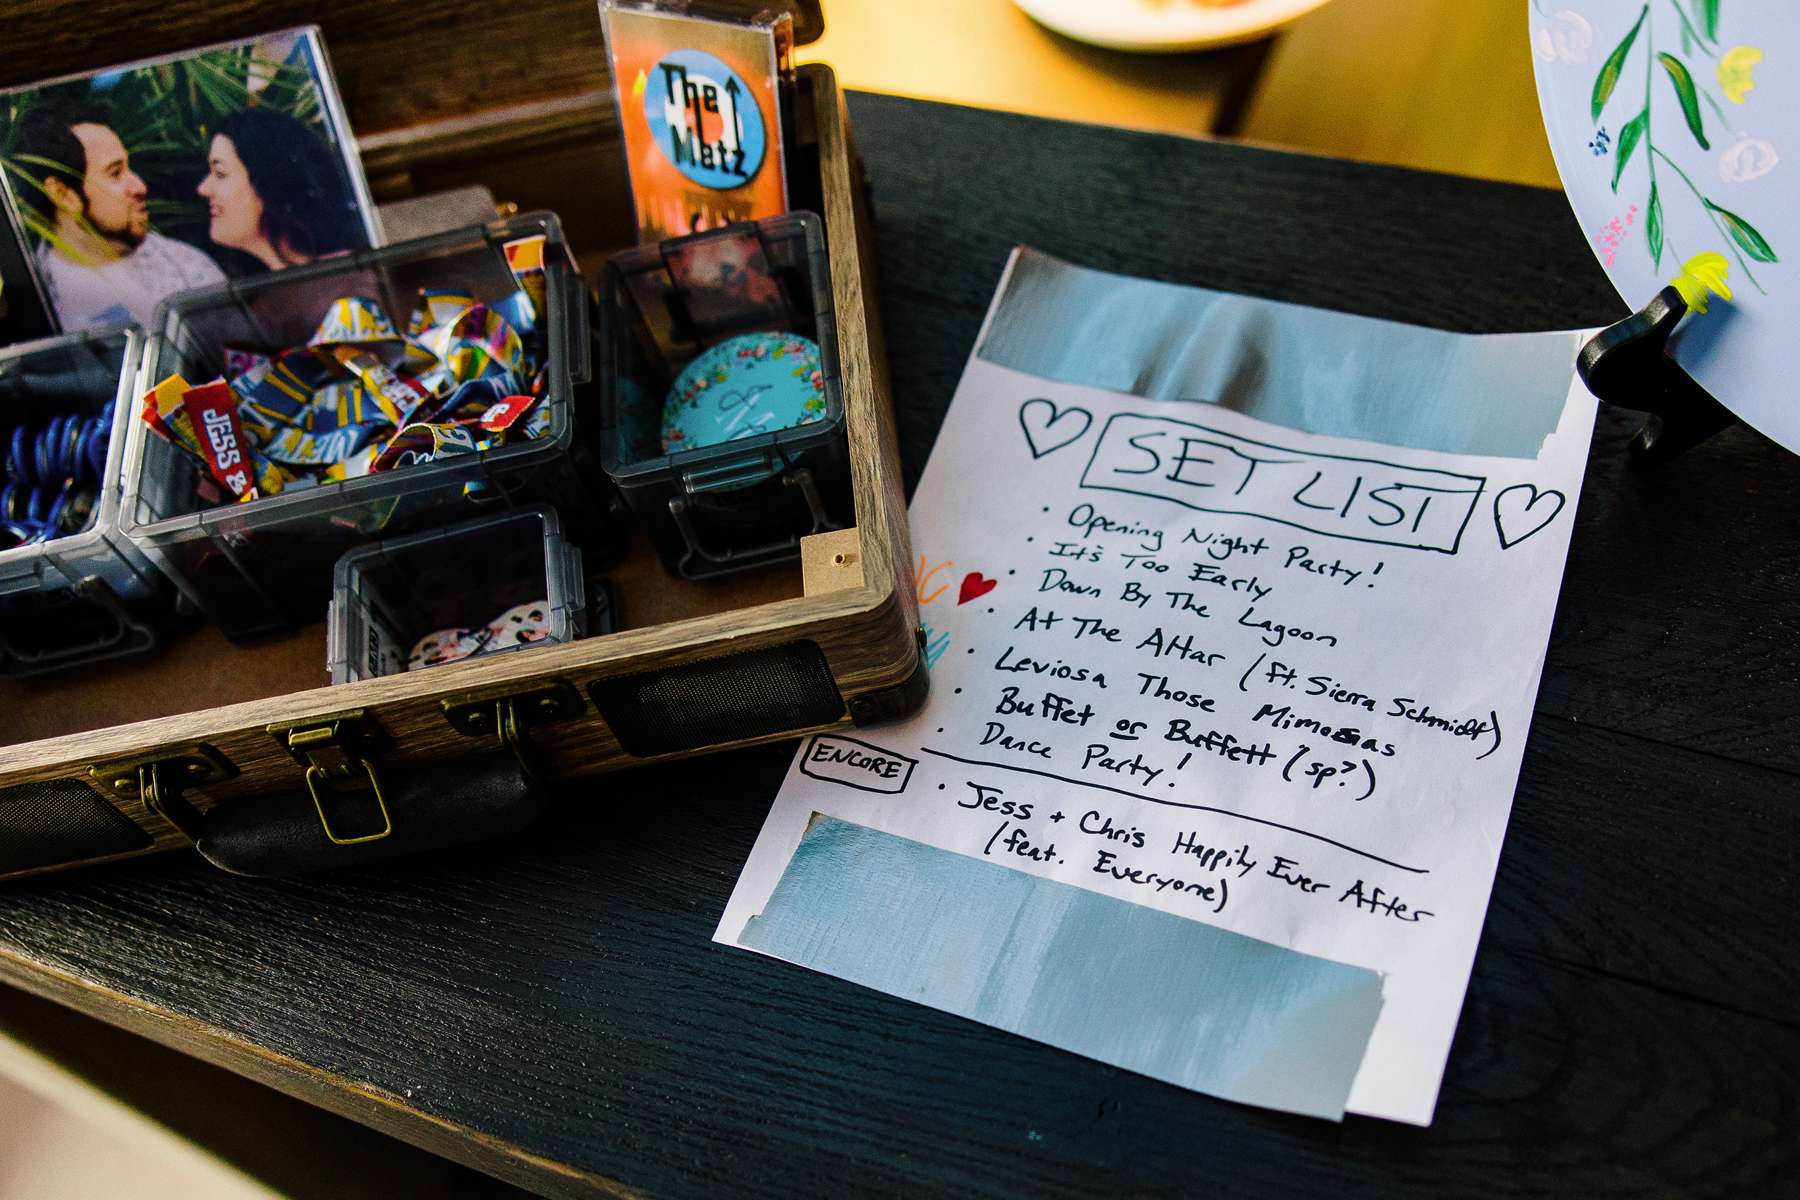 The
Matz
JESS &
SET LIST
• Opening Night Party!
• It's Too Early
• Down By The Lagoon
• At The Altar (ft. Sierra Schmidt)
• Leviosa Those Mimosas
• Buffet or Buffett (sp?)
• Dance Party!
ENCORE
• Jess + Chris Happily Ever After
(feat. Everyone)